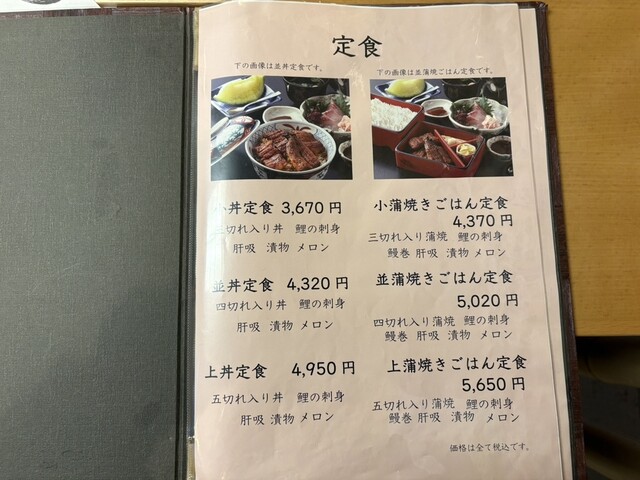 定食
下の画像は並丼定食です。
下の画像は並蒲焼ごはん定食です。
小丼定食 3,670 円
三切れ入り丼 鯉の刺身
肝吸 漬物 メロン
並丼定食 4,320 円
四切れ入り丼 鯉の刺身
肝吸 漬物 メロン
上丼定食 4,950 円
五切れ入り丼 鯉の刺身
肝吸 漬物 メロン
小蒲焼きごはん定食
4,370 円
三切れ入り蒲焼 鯉の刺身
鰻巻 肝吸 漬物 メロン
並蒲焼きごはん定食
5,020 円
四切れ入り蒲焼 鯉の刺身
鰻巻 肝吸 漬物 メロン
上蒲焼きごはん定食
5,650 円
五切れ入り蒲焼 鯉の刺身
鰻巻 肝吸 漬物 メロン
価格は全て税込です。